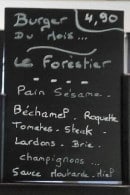 Burger 4,90
Du Mois...
Le Forestier
Pain Sésame.
Béchamel. Roquette
Tomates. Steak.
Lardons. Brie.
champignons...
Sauce Moutarde.miel